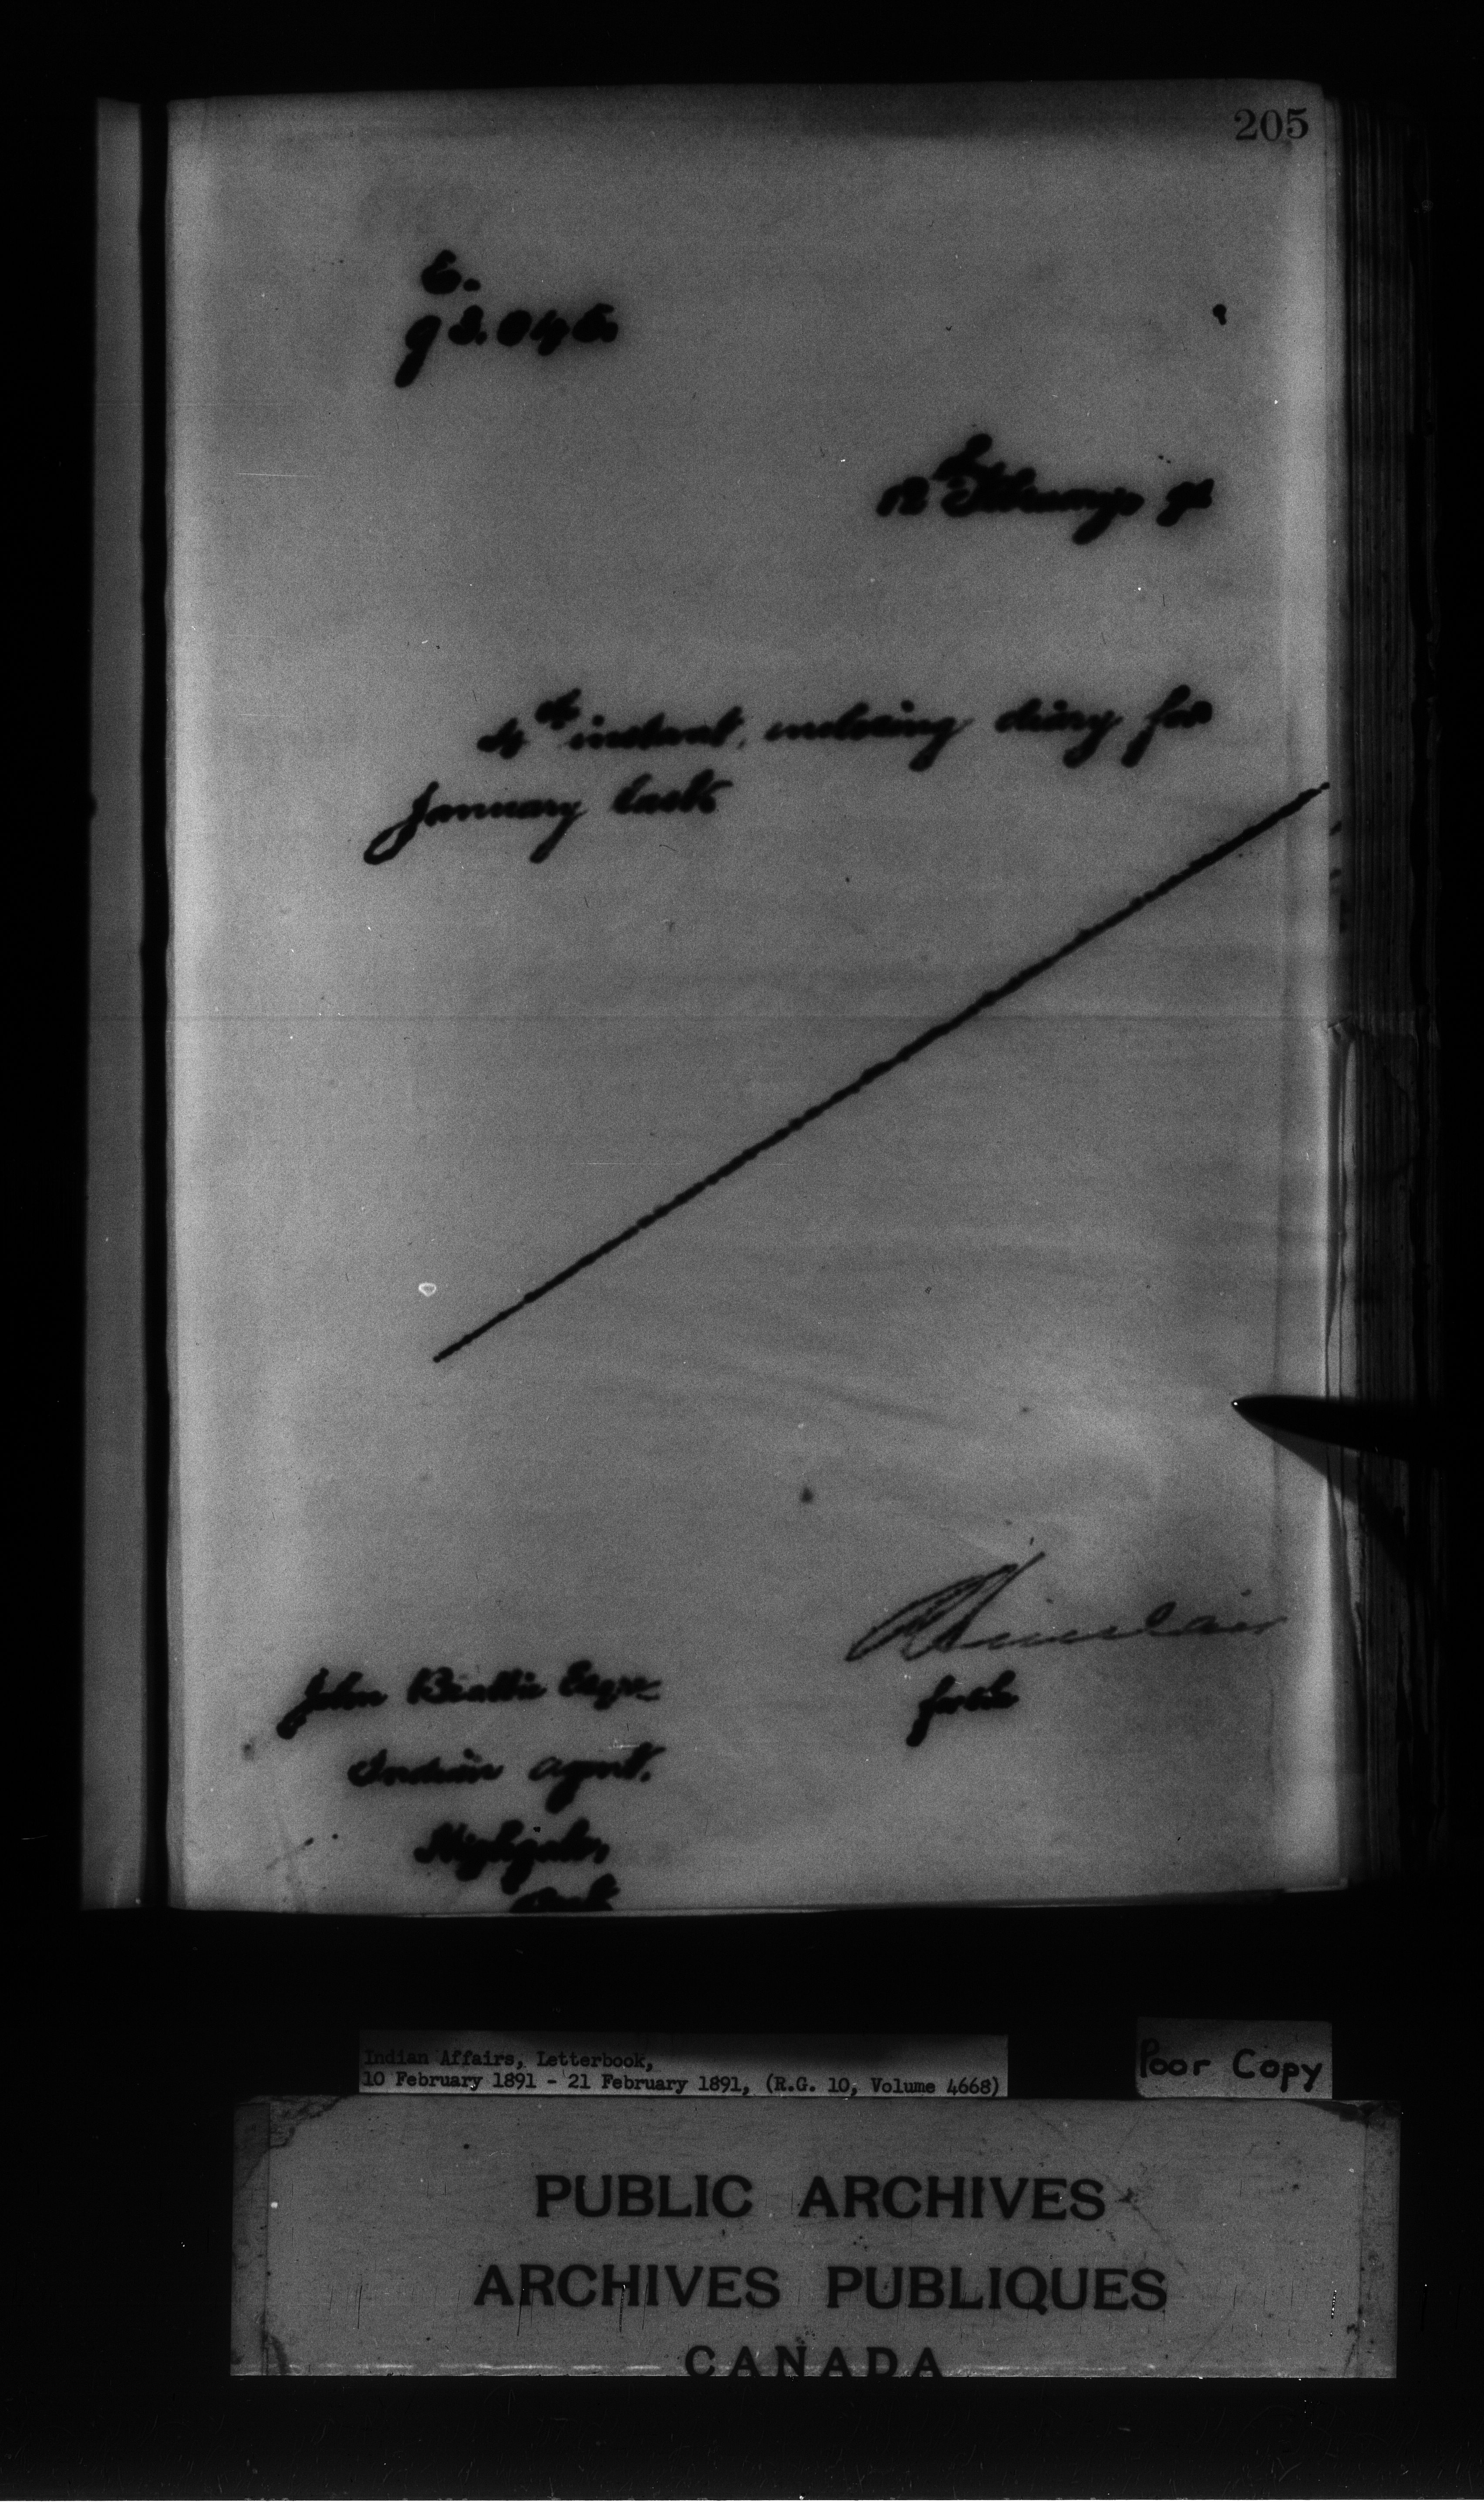 205
E.
93.046
12th February 91
4th instant, inclosing diary for
January last.
Sinclair
for the
John Beattie Esqre
Indian agent.
Highgate,
Ont.
Indian Affairs, Letterbook,
10 February 1891 - 21 February 1891, (R.G. 10, Volume 4668)
Poor Copy
PUBLIC ARCHIVES
ARCHIVES PUBLIQUES
CANADA